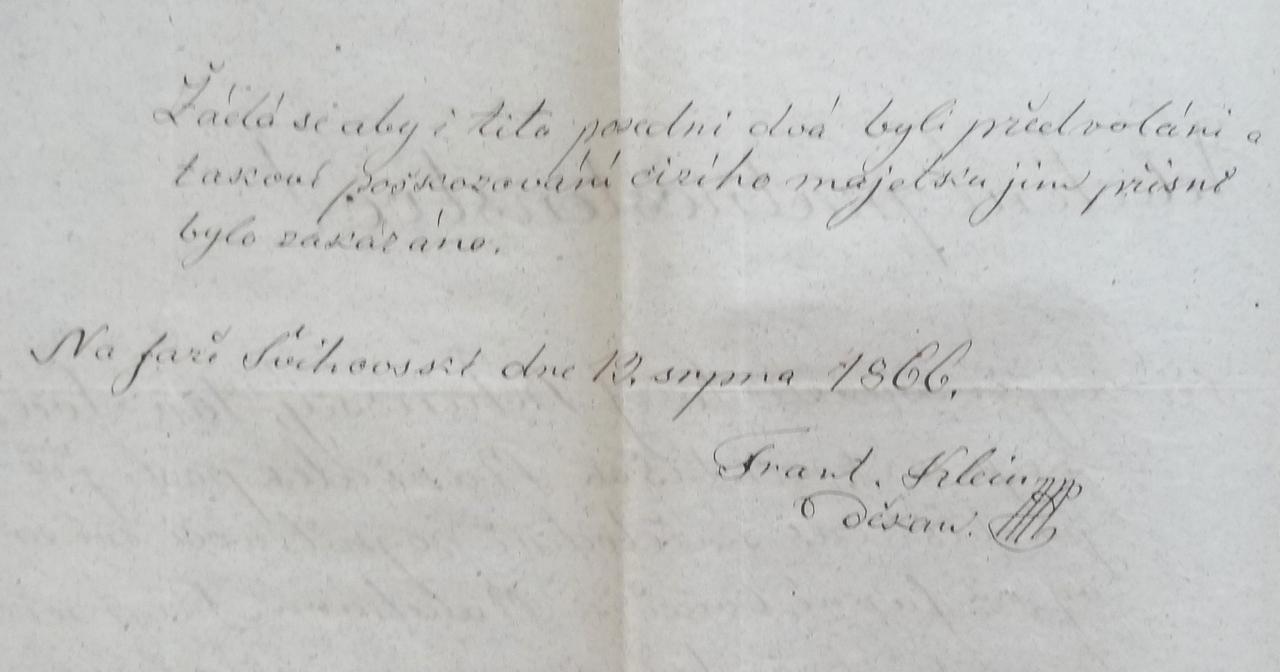 Žádá se aby i tito poscdni dvá byli předvoláni a
takové poškozování cizího majetku jim přísně
bylo zakázáno.
Na faře Švihovské dne 13. srpna 1866.
Frant. Klein
děkan.